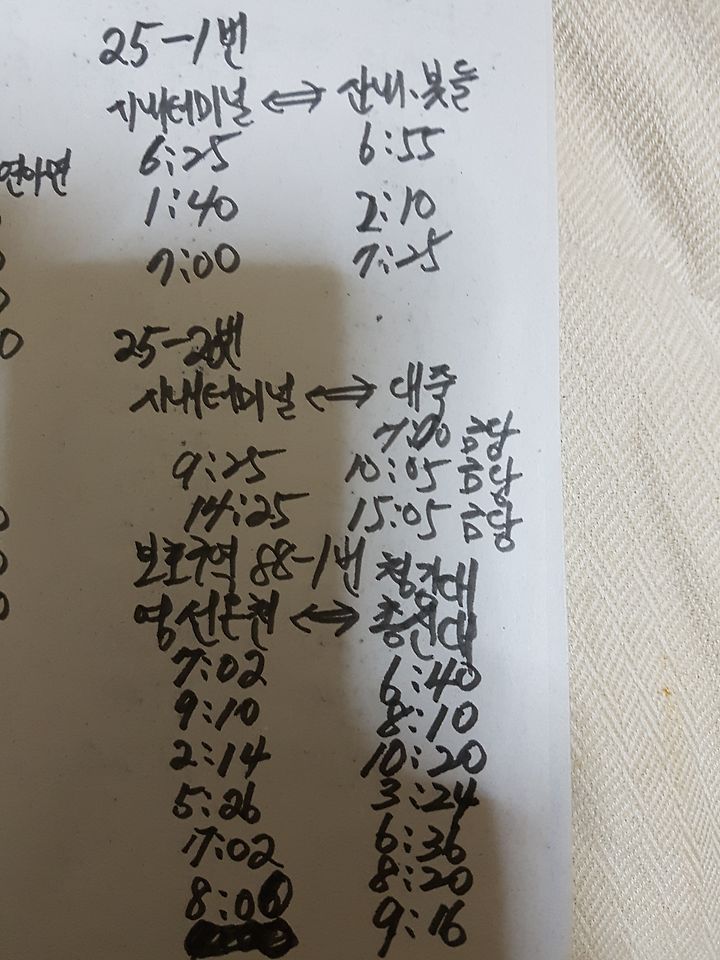 25-1번
시내터미널 ⇔ 산내.봇들
6:25 6:55
1:40 2:10
7:00 7:25
25-2번
시내터미널 ⇔ 대죽
7:00 금답
9:25 10:05 금답
14:25 15:05 금답
88-1번
영선온천 ⇔
7:02 6:40
9:10 8:10
2:14 10:20
5:26 3:24
17:02 6:36
8:06 8:20
9:16
연하면